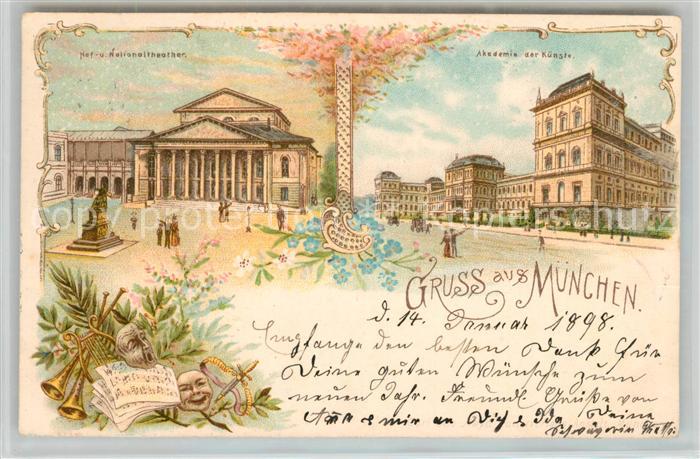 Hof- u. Nationaltheather.
Akademie der Künste.
GRUSS aus MÜNCHEN.
d. 14. Januar 1898.
Empfange den besten Dank für
Deine guten Wünsche zum
neuen Jahr. Freundl. Grüße von
Anna & mir an Dich & Ida Deine
Schwägerin